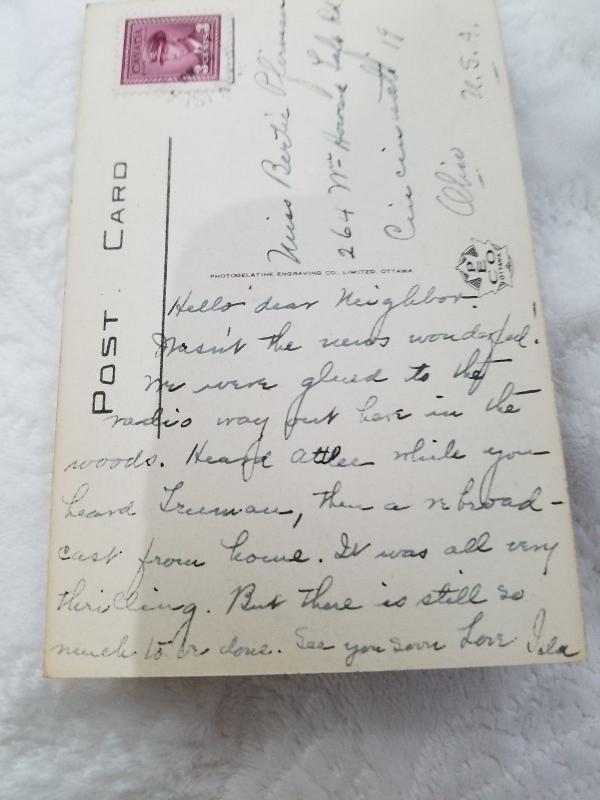 CANADA
3 CENTS 3
POST CARD
Miss Bertie
264 Wm Howard Taft Rd
Cincinnati 19
Ohio U.S.A.
PHOTOGELATINE ENGRAVING CO., LIMITED, OTTAWA.
PECO
OTTAWA
Hello dear Neighbor.
Wasn't the news wonderful.
We were glued to the
radio way out here in the
woods. Heard Attlee while you
heard Truman, then a rebroad-
cast from home. It was all very
thrilling. But there is still so
much to be done. See you soon Love